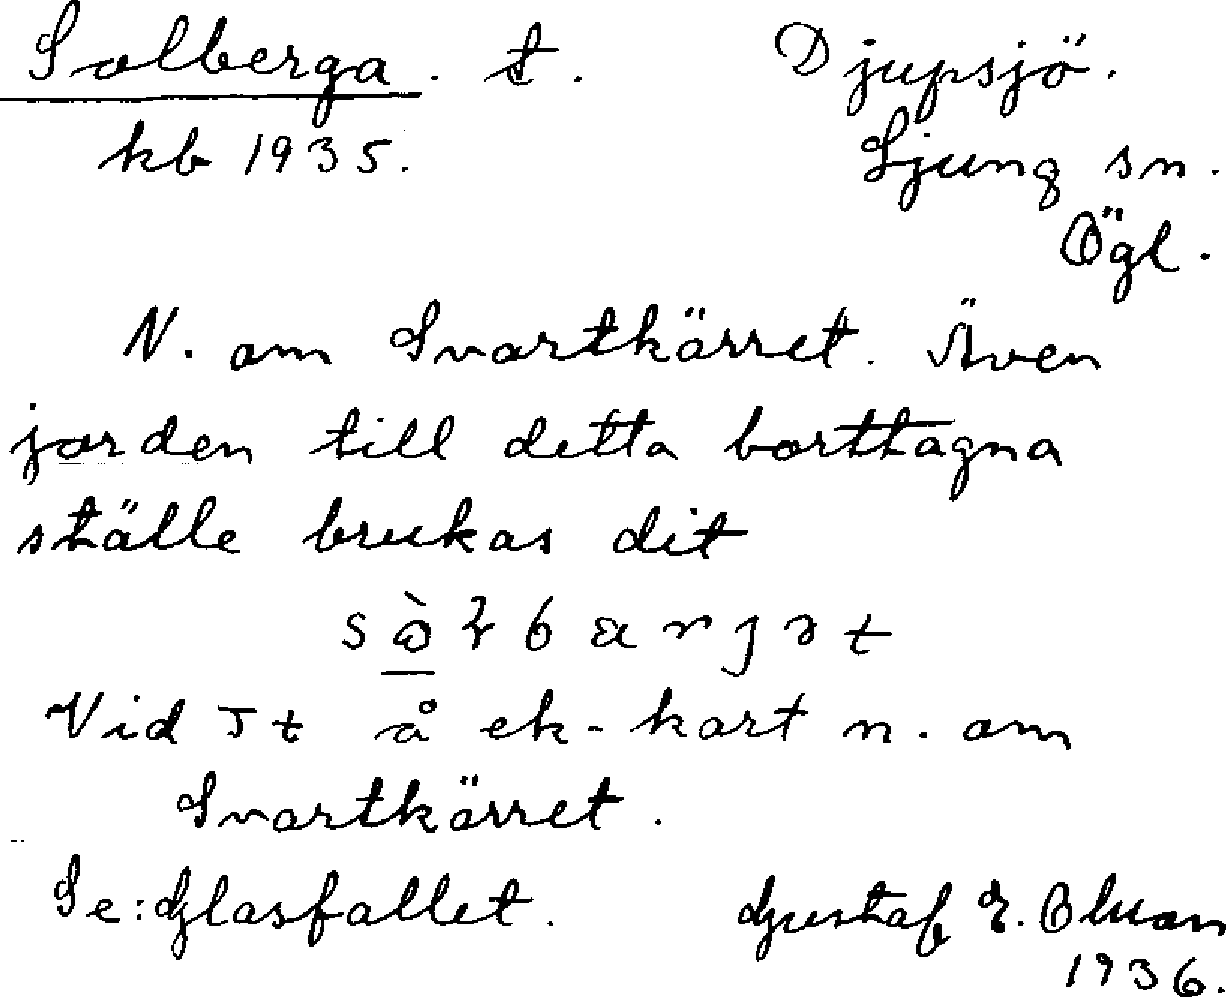 Solberga. t. Djupsjö.
kb 1935. Ljung sn.
Ögl.
N. om Svartkärret. Även
jorden till detta borttagna
ställe brukas dit
Vid Jt å ek-kart n. om
Svartkärret.
Se: Glasfallet. Gustaf E.
1936.